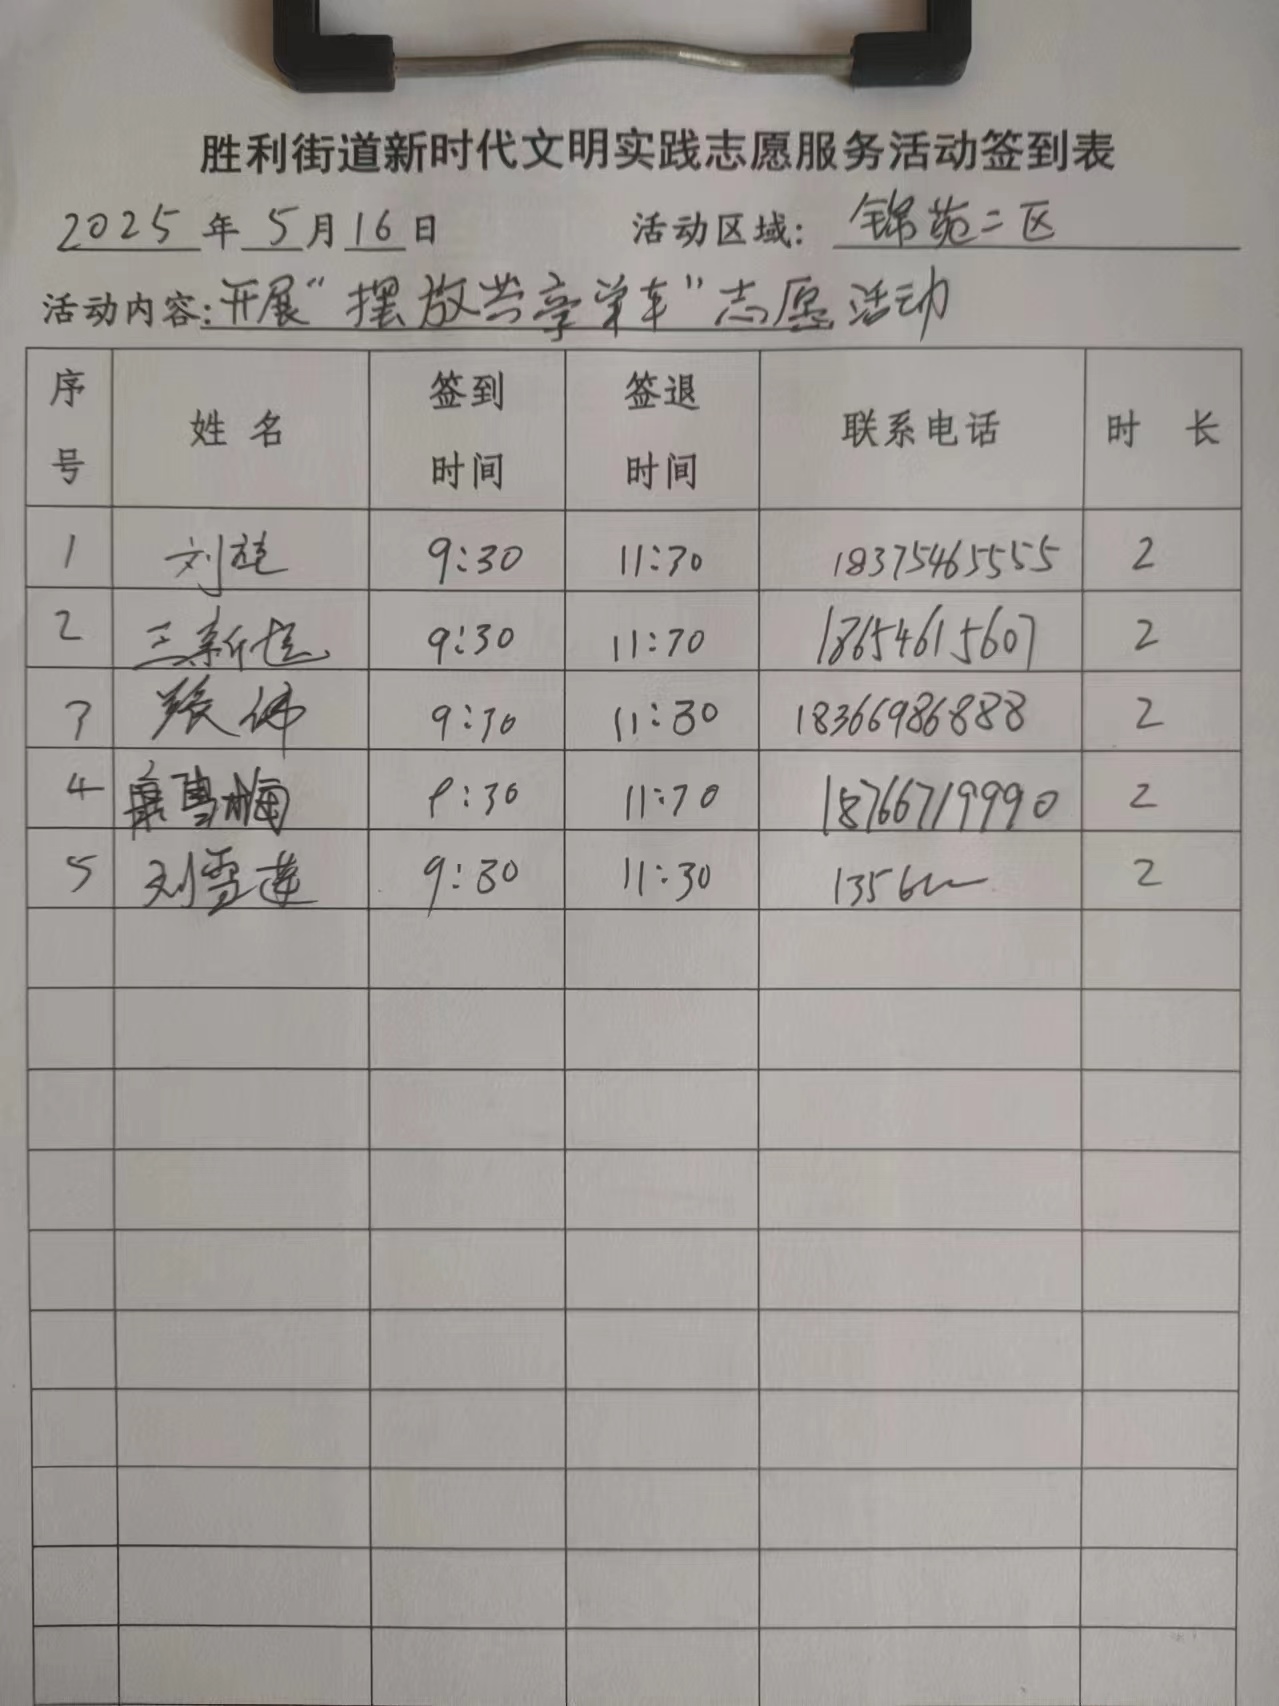 胜利街道新时代文明实践志愿服务活动签到表
2025年5月16日 活动区域: 锦苑二区
活动内容:开展“摆放共享单车”志愿活动
序号 姓名 签到时间 签退时间 联系电话 时长
1 刘 9:30 11:30 18375465555 2
2 9:30 11:30 18654615607 2
3 张伟 9:30 11:30 18366986888 2
4 梅 9:30 11:30 18766719990 2
5 刘雪莲 9:30 11:30 1356 2